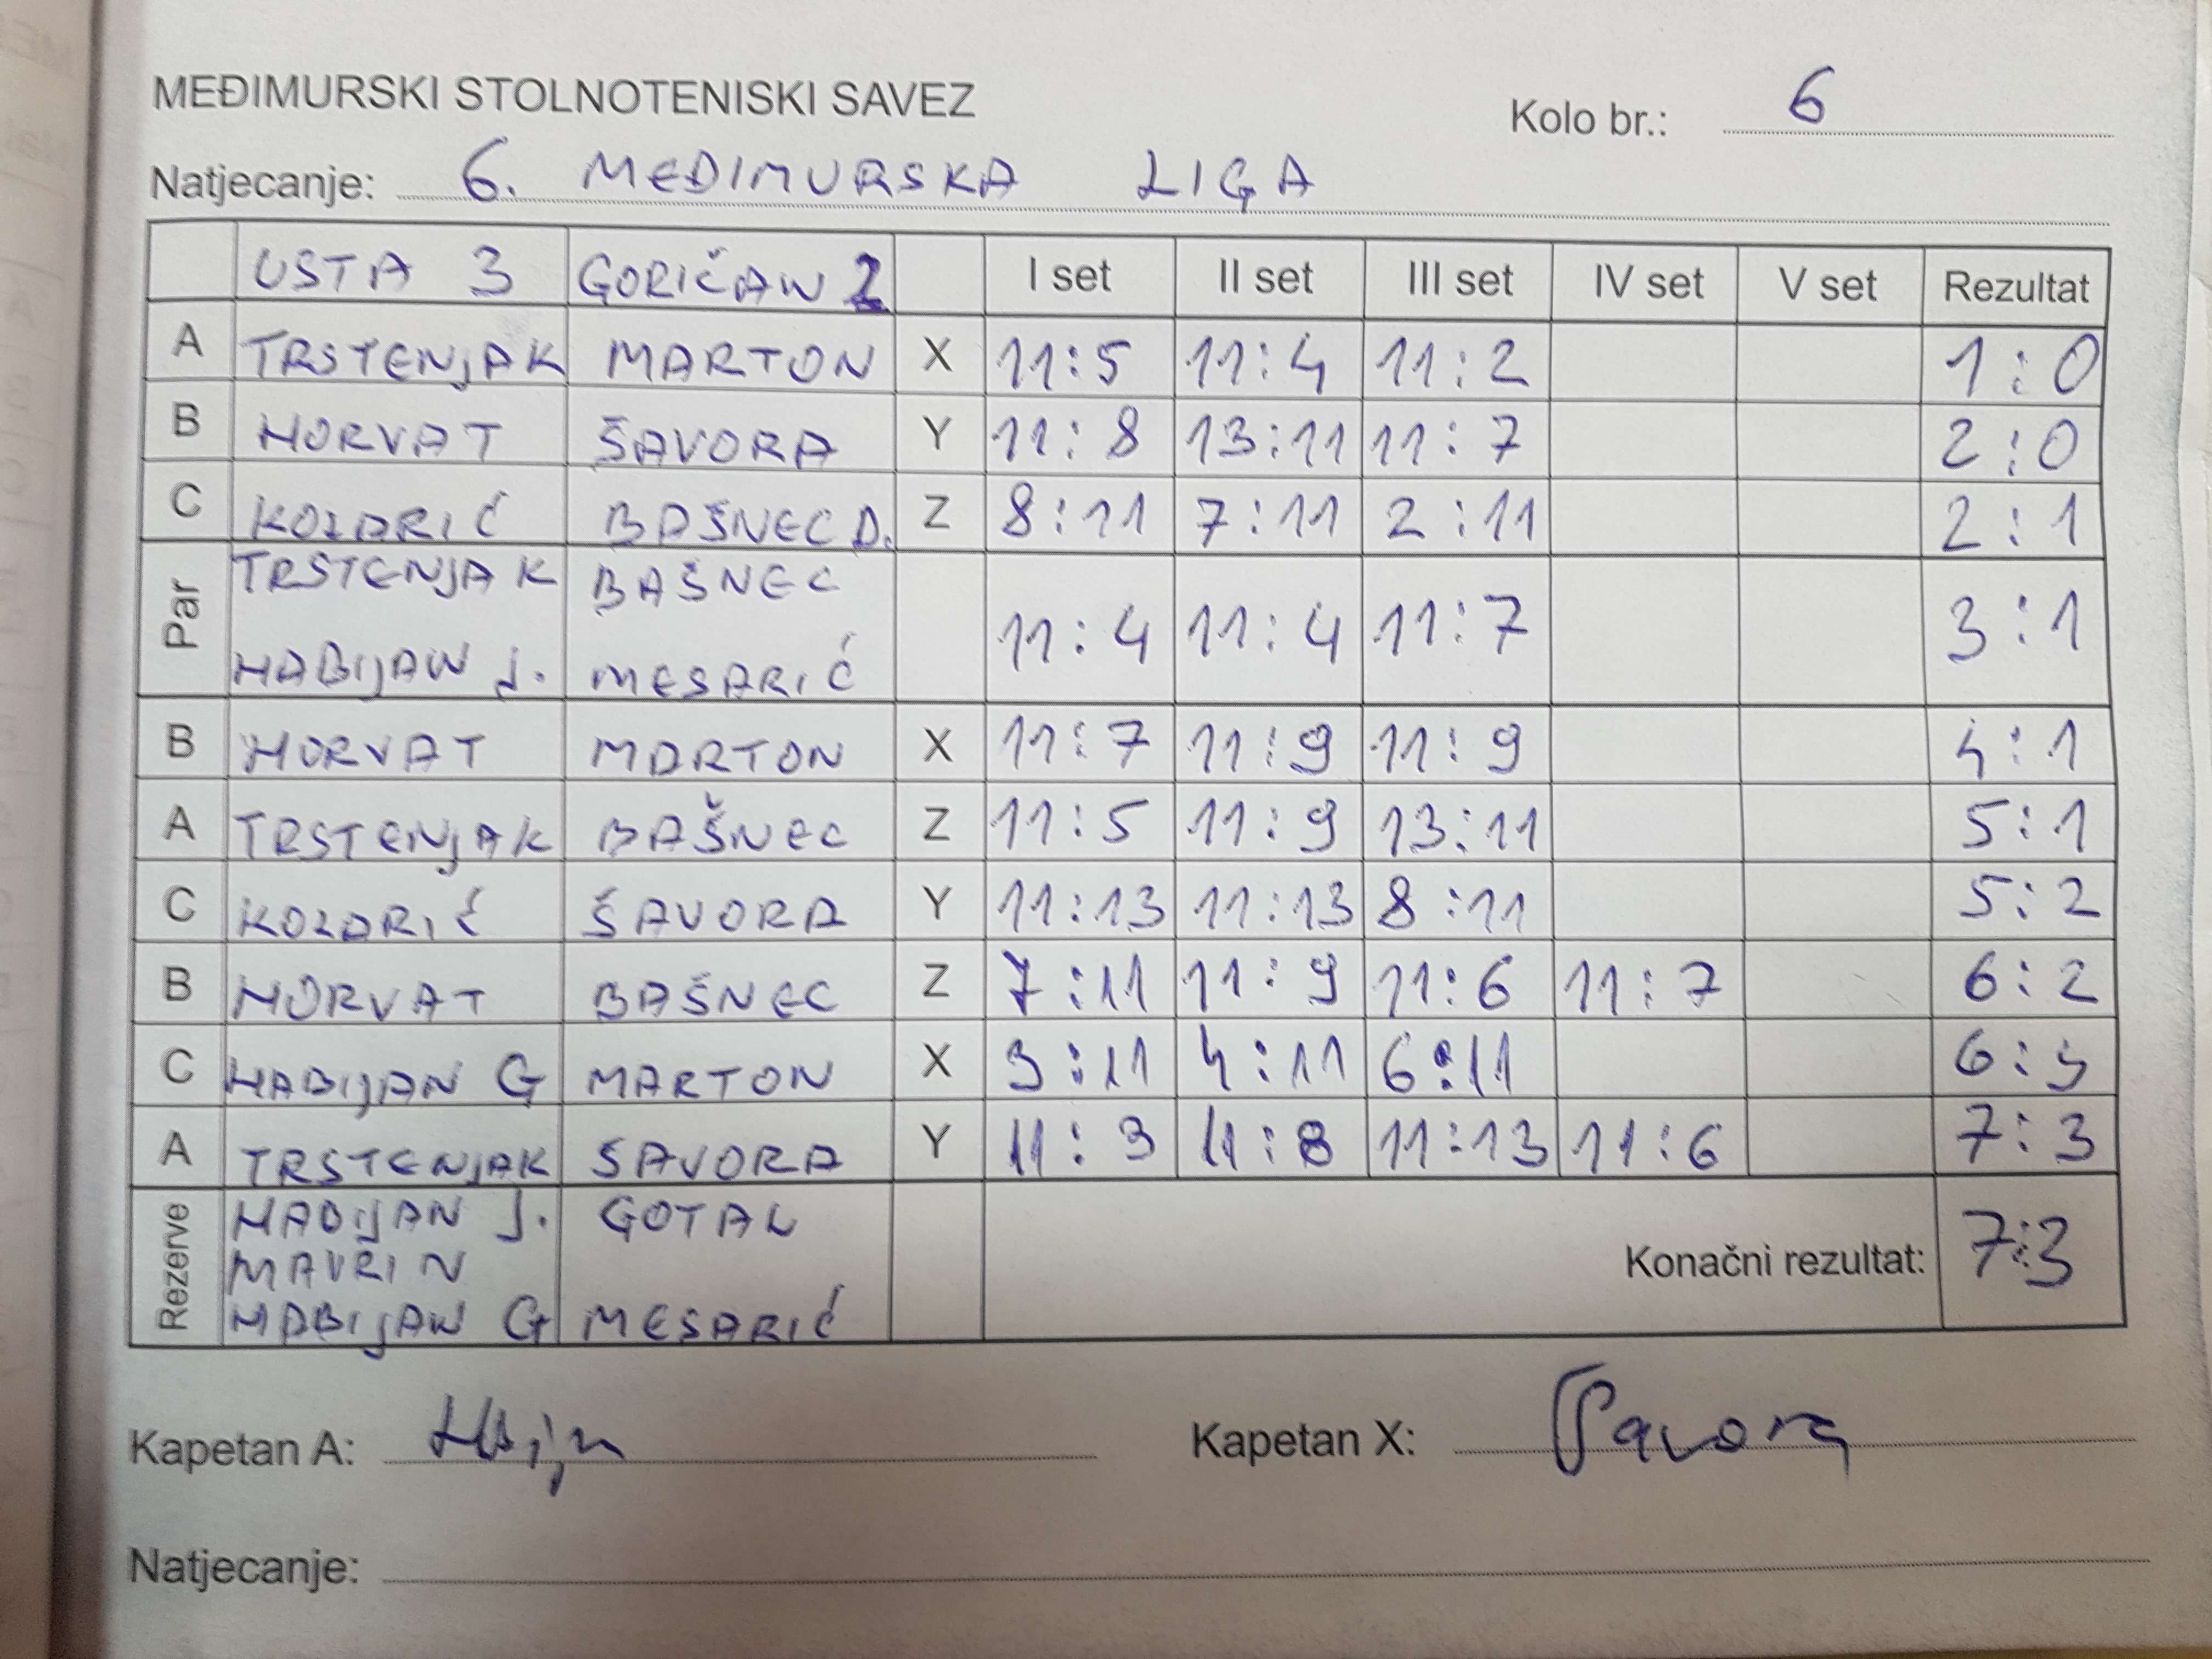 MEĐIMURSKI STOLNOTENISKI SAVEZ Kolo br.: 6
Natjecanje: 6. MEĐIMURSKA LIGA
USTA 3 GORIČAN 2 I set II set III set IV set V set Rezultat
A TRSTENJAK MARTON X 11:5 11:4 11:2 1:0
B HORVAT ŠAVORA Y 11:8 13:11 11:7 2:0
C KOLARIĆ BAŠNEC D. Z 8:11 7:11 2:11 2:1
Par TRSTENJAK BAŠNEC
HABIJAN J. MESARIĆ 11:4 11:4 11:7 3:1
B HORVAT MARTON X 11:7 11:9 11:9 4:1
A TRSTENJAK BAŠNEC Z 11:5 11:9 13:11 5:1
C KOLARIĆ ŠAVORA Y 11:13 11:13 8:11 5:2
B HORVAT BAŠNEC Z 7:11 11:9 11:6 11:7 6:2
C HABIJAN G MARTON X 3:11 4:11 6:11 6:3
A TRSTENJAK ŠAVORA Y 11:3 11:8 11:13 11:6 7:3
Rezerve HABIJAN J. GOTAL
MAVRIN
HABIJAN G MESARIĆ
Konačni rezultat: 7:3
Kapetan A: Kapetan X: Šavora
Natjecanje: